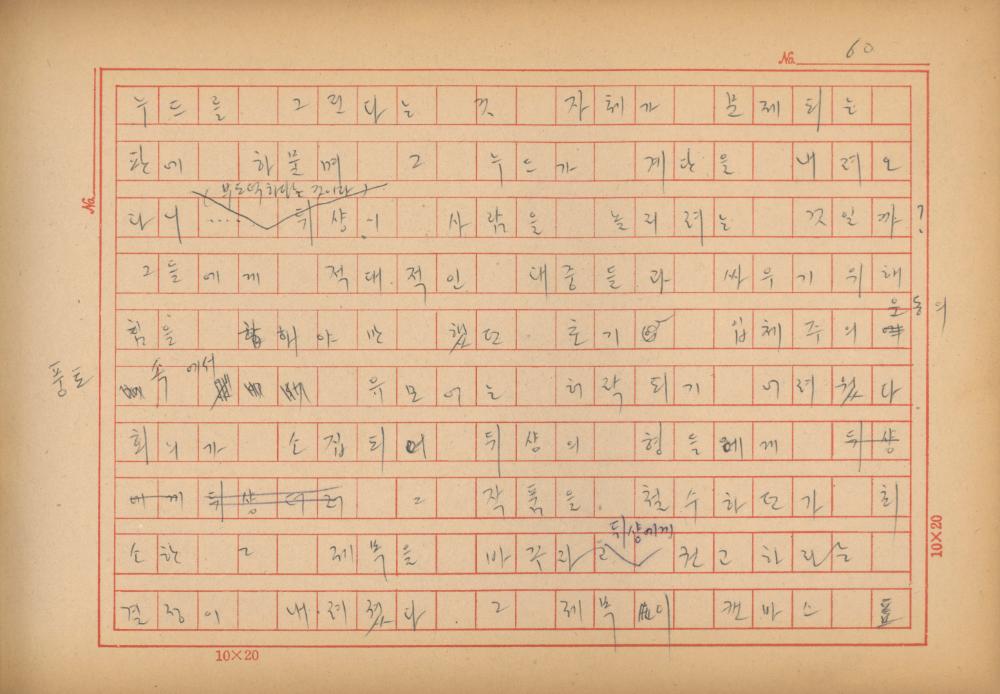 No. 60
누드를 그린다는 것 자체가 문제되는
판에 하물며 그 누드가 계단을 내려오
(부도덕하다는 것이라)
다니 ..... 뒤샹이 사람을 놀리려는 것일까?
그들에게 적대적인 대중들과 싸우기 위해
운동의
힘을 합해야만 했던 초기 입체주의
풍토 속에서 유모어는 허락되기 어려웠다
회의가 소집되어 뒤샹의 형들에게 뒤샹
에게 뒤샹 이러 그 작품을 철수하던가 최
뒤샹에게
소한 그 제목을 바꾸라고 권고하라는
결정이 내려졌다. 그 제목이 캔바스
No.
10×20
10×20